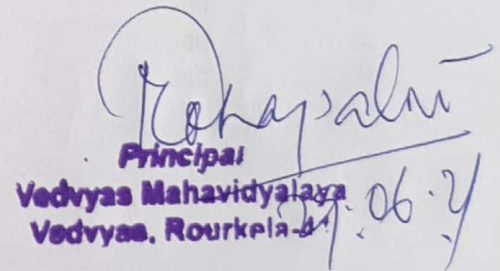 Principal
Vedvyas Mahavidyalaya
Vedvyas, Rourkela-41